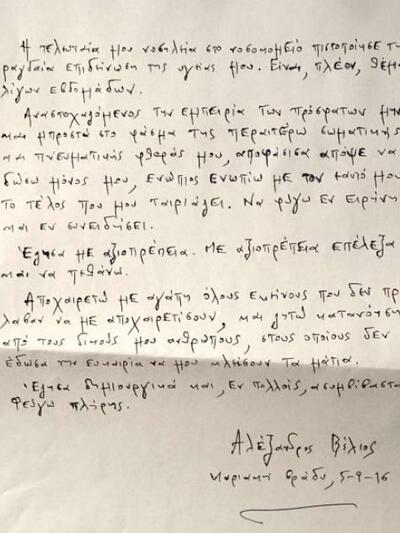 Η τελευταία μου νοσηλεία στο νοσοκομείο πιστοποίησε τη
ραγδαία επιδείνωση της υγείας μου. Είναι, πλέον, θέμα
λίγων εβδομάδων.
Αναστοχαζόμενος την εμπειρία των πρόσφατων μην
και μπροστά στο φάσμα της περαιτέρω σωματικής
και πνευματικής φθοράς μου, αποφάσισα απόψε να
δώσω μόνος μου, ενώπιος ενωπίω με τον εαυτό μου
το τέλος που μου ταιριάζει. Να φύγω εν ειρήνη
και εν συνειδήσει.
Έζησα με αξιοπρέπεια. Με αξιοπρέπεια επέλεξα
και να πεθάνω.
Αποχαιρετώ με αγάπη όλους εκείνους που δεν πρ
λαβαν να με αποχαιρετίσουν, και ζητώ κατανόηση
από τους δικούς μου ανθρώπους, στους οποίους δεν
έδωσα την ευκαιρία να μου κλείσουν τα μάτια.
Έζησα δημιουργικά και, εν πολλοίς, ασυμβίβαστα
Φεύγω πλήρης.
Αλέξανδρος Βέλιος
Κυριακή βράδυ, 5-9-16